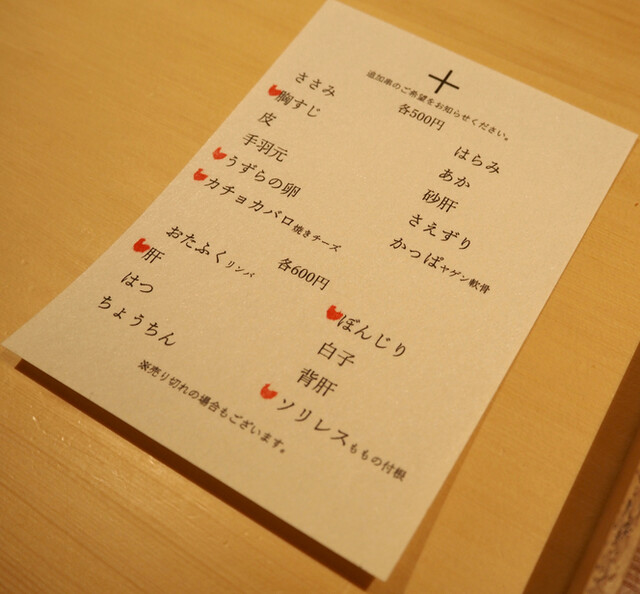 十
追加串のご希望をお知らせください。
各500円
ささみ
胸すじ
皮
手羽元
うずらの卵
カチョカバロ焼きチーズ
はらみ
あか
砂肝
さえずり
かっぱヤゲン軟骨
各600円
おたふくリンパ
肝
はつ
ちょうちん
ぼんじり
白子
背肝
ソリレスももの付根
※売り切れの場合もございます。